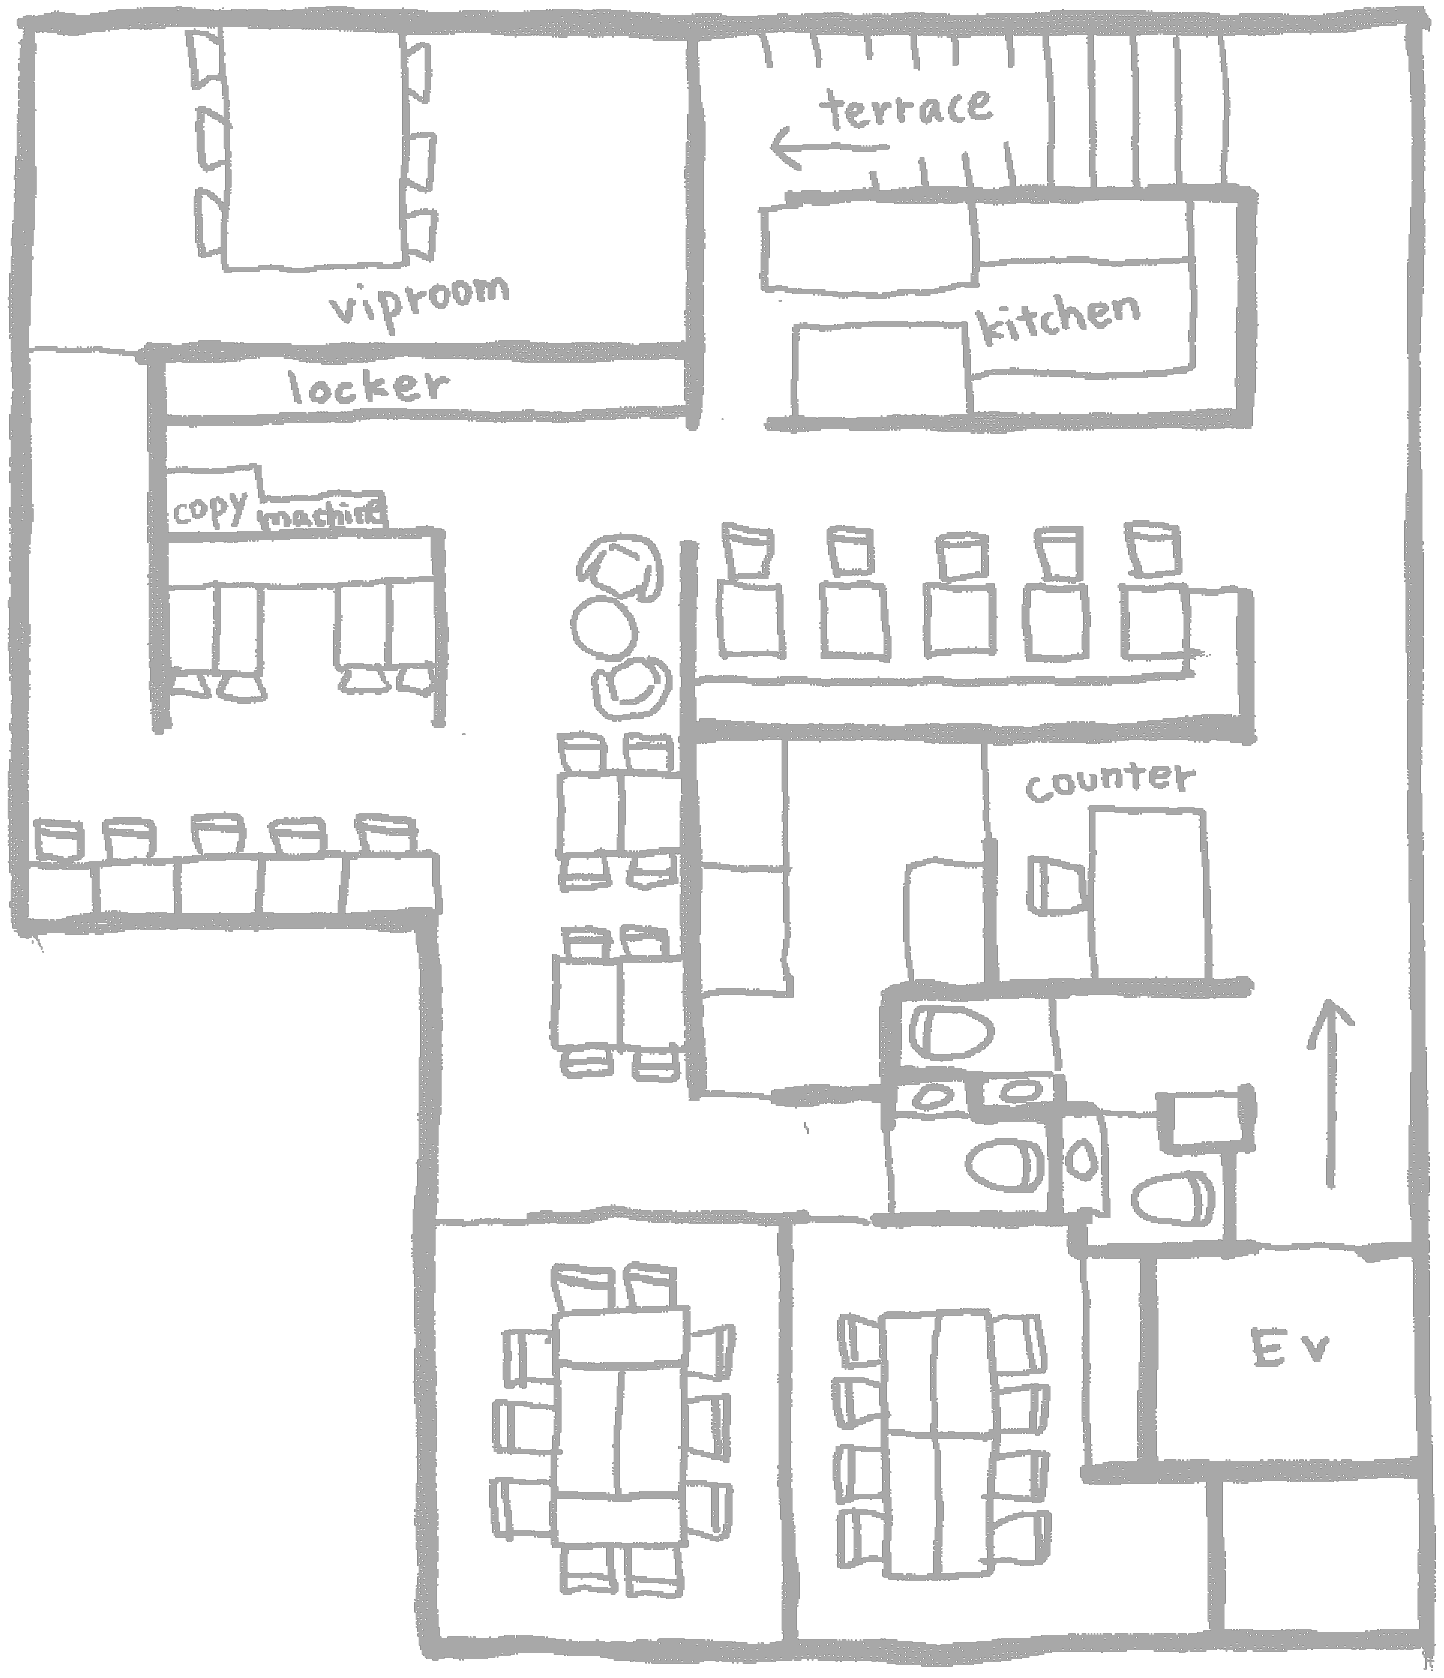 terrace
viproom
kitchen
locker
copy machine
counter
Ev